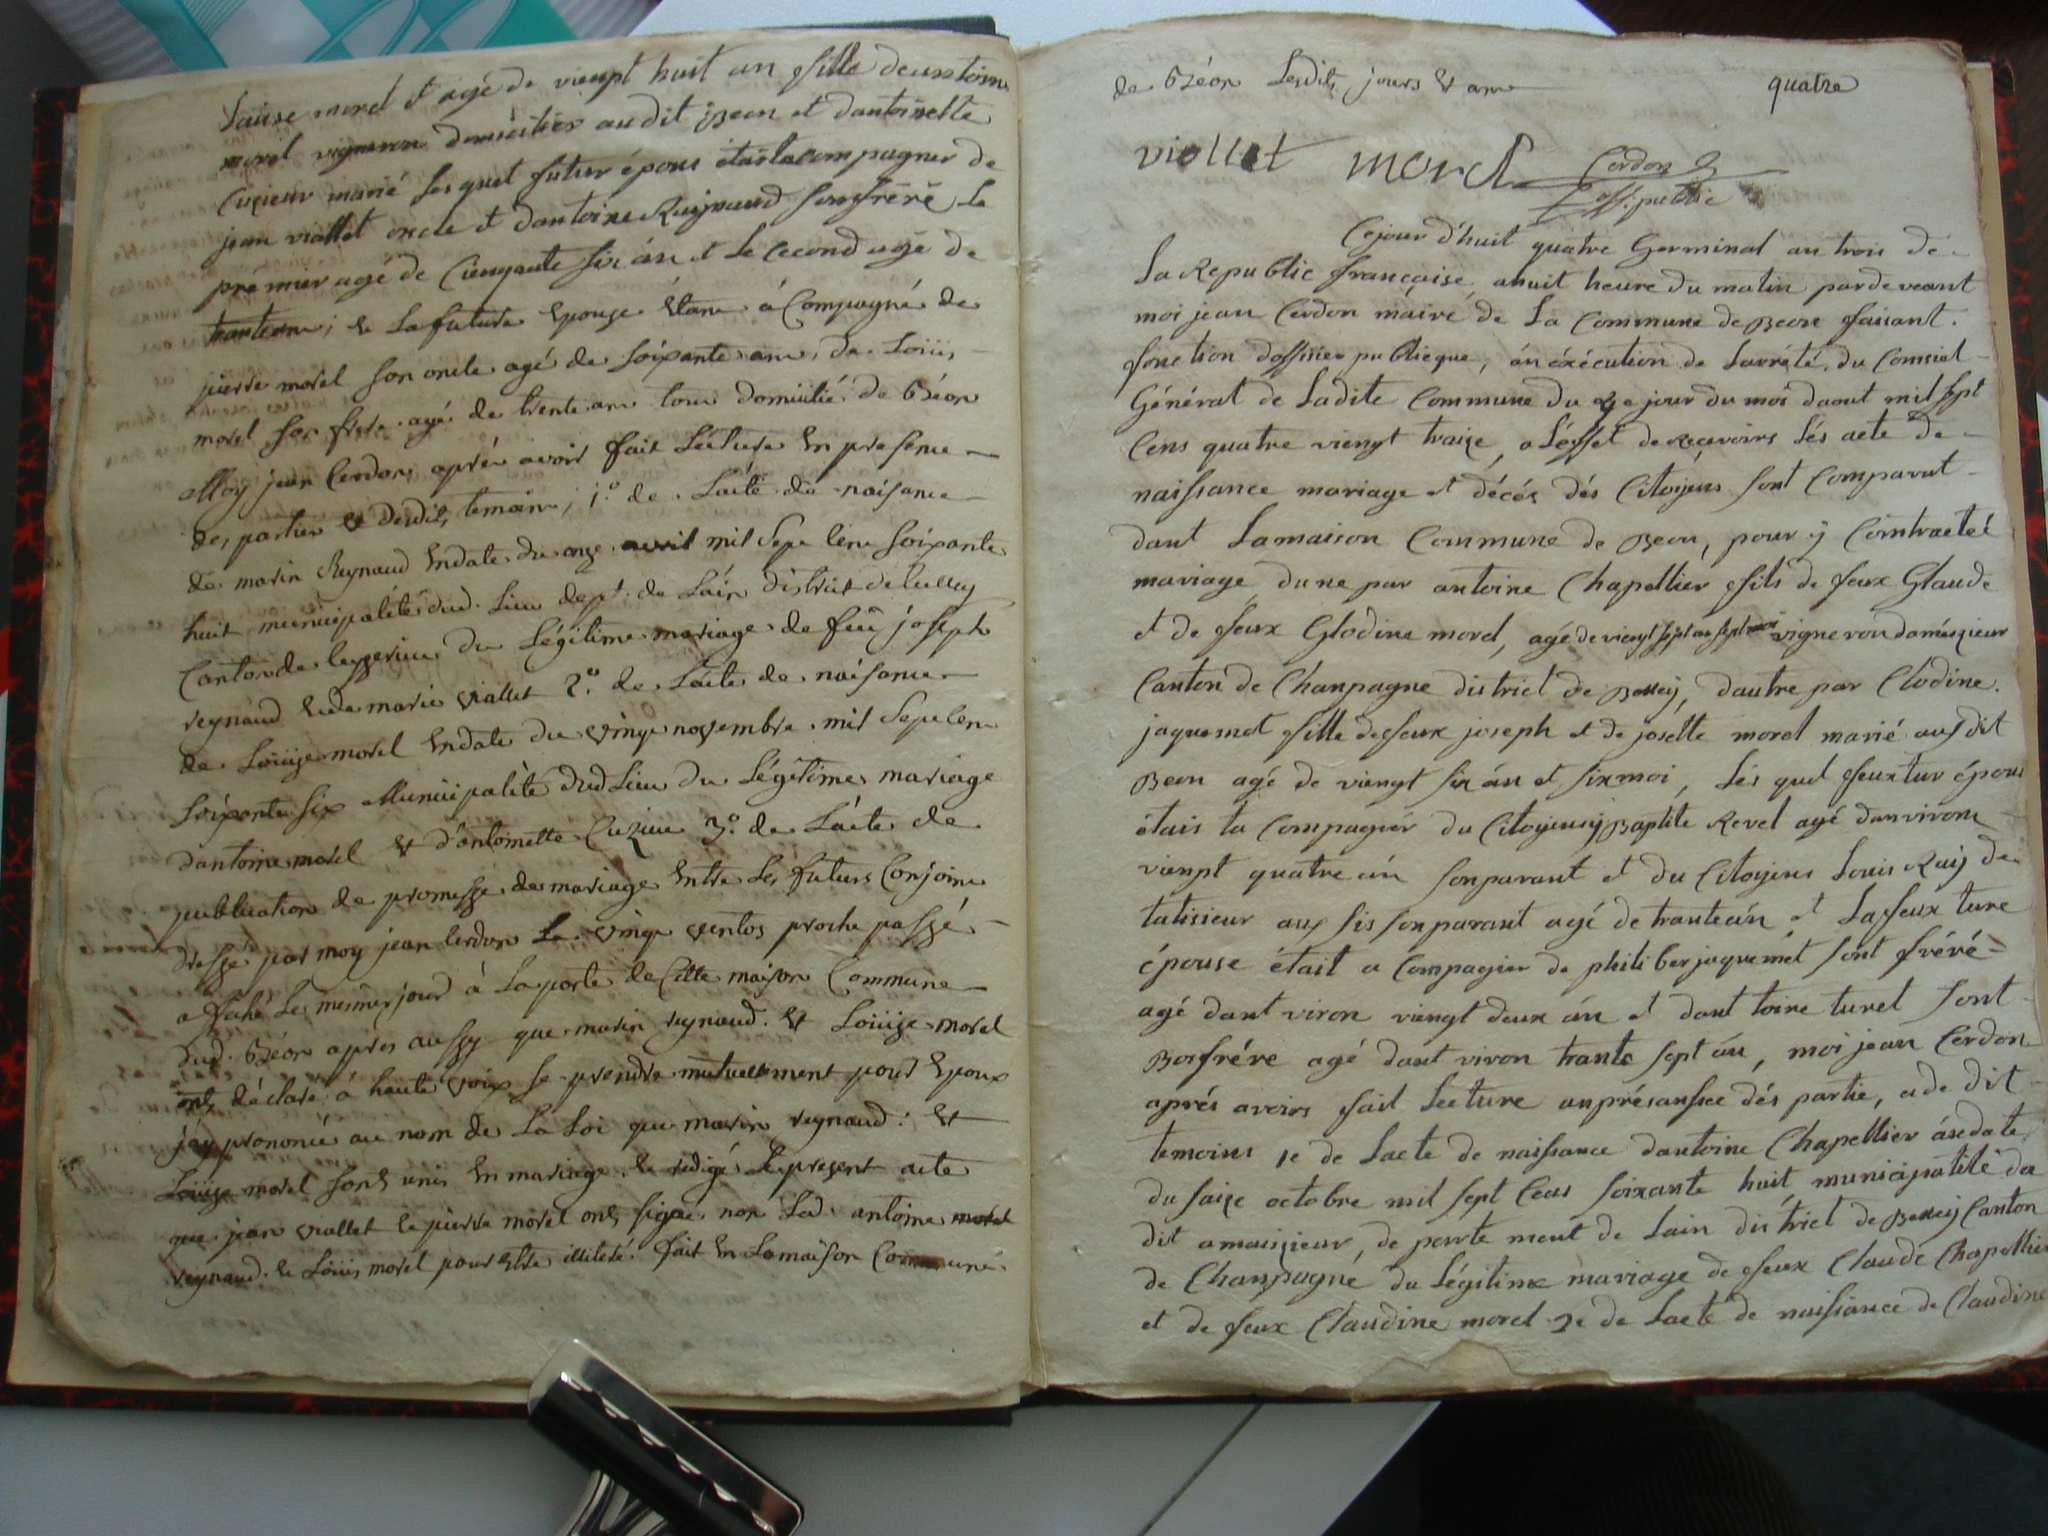 Louise morel et agé de viengt huit an fille deuntoine
morel vigneron domicilier audit Beon et dantoinette
Cuzieur marié Les quel futur épous étaitacompagner de
jean viollet oncle et dantoine Raijnaud sonfrérê Le
premier agé de Cienquante six án et Le Cecond agé de
tranteane; & Lafuture Epouze Etant áCompagné de
pierre morel son oncle agé de soixante ans, de Loüis
morel son frere agé de trente ans tous domicilié de Béon
Moy jean Cerdon, aprés avoir fait Lecture En presence
des parties & desdits temoins, 1.º de Lácte de naisance
de marin Reynaud Endate du onze avril mil Sept Cens soixante
huit municipalité dud. Lieu dept. de Láin district de belley
Canton de Ceyzerieu du Légitime mariage de feü joseph
reynaud & de marie viallet 2.º de Lácte de naisance
de Loüize morel Endate du vingt novembre mil Sept Cens
Soixante six Municipalité dud Lieu du Légitime mariage
dantoine morel & d'antoinette Cuzieu 3.º de Lácte de
publication de promesse de mariage Entre Les futurs Conjoins
dressé par moy jean Cerdon Le vingt ventos proche passé
afiché Le mesme jour à La porte de Cette maison Commune
dud. Béon apres aussy que marin reynaud. & Loüize morel
onts déclaré á haute voix se prendre mutuellement pour Epoux
j'áy prononcé au nom de La Loi que marin reynaud: &
Loüize morel sont unis En mariage & redigé Le present acte
que jean viallet & pierre morel onts signe non Led. antoine morel
reynaud. & Loüis morel pour Etre illiteré. fait En Lamaison Commune
de Béon Lesdits jours & an quatre
viollet morel Cerdon
off. public
Cejour d'huit quatre Germinal an trois de
La Republic française ahuit heure du matin pardeveant
moi jean Cerdon maire de La Commune de Beon faisant
fonction dofficier publicque, án éxécution de Larrété du Consiel
Général de Ladite Commune du 29e jour du moi daout mil sept
Cens quatre viengt traize, a Léffet de Recevoirs Lés acte de
naissance mariage et décés dés Citoijens sont Comparut
dant Lamaison Commune de Beon, pour ij Contracteé
mariage dune par antoine Chapellier fils de feux Glaude
et de feux Glodine morel, agé de viengt sept an sept moi vigneron damésieur
Canton de Chanpagne district de Belleij, dautre par Clodine
jaquemet fille defeux joseph et de josette morel marié audit
Beon agé de viengt six án et six moi, Lés quel feuxtur épous
étais ta Compagnér du Citoijensij Baptite Revel agé danvirons
vienpt quatre án sonparant et du Citoijens Louis Ruij de
talisieur aux sis sonparant agé de tranteán et Lafeux ture
épouse était a Compagier de philiber jaquemét sont fréré
agé dant viron viengt deux án et dant toine turel sont
Bosfrére agé dant viron trante sept án, moi jean Cerdon
aprés avoirs fait Lecture anprésanssee dés partie, ade dit
temoins 1e de Lacte de naissance dantoine Chapellier ásedate
du saize octobre mil sept Cens soixante huit municipatité du
dit amaisieur, de parte ment de Lain district de Belleij Canton
de Chanpagné du Légitime mariage de feux Claude Chapellier
et de feux Claudine morel 2e de Lacte de naissance de Claudine